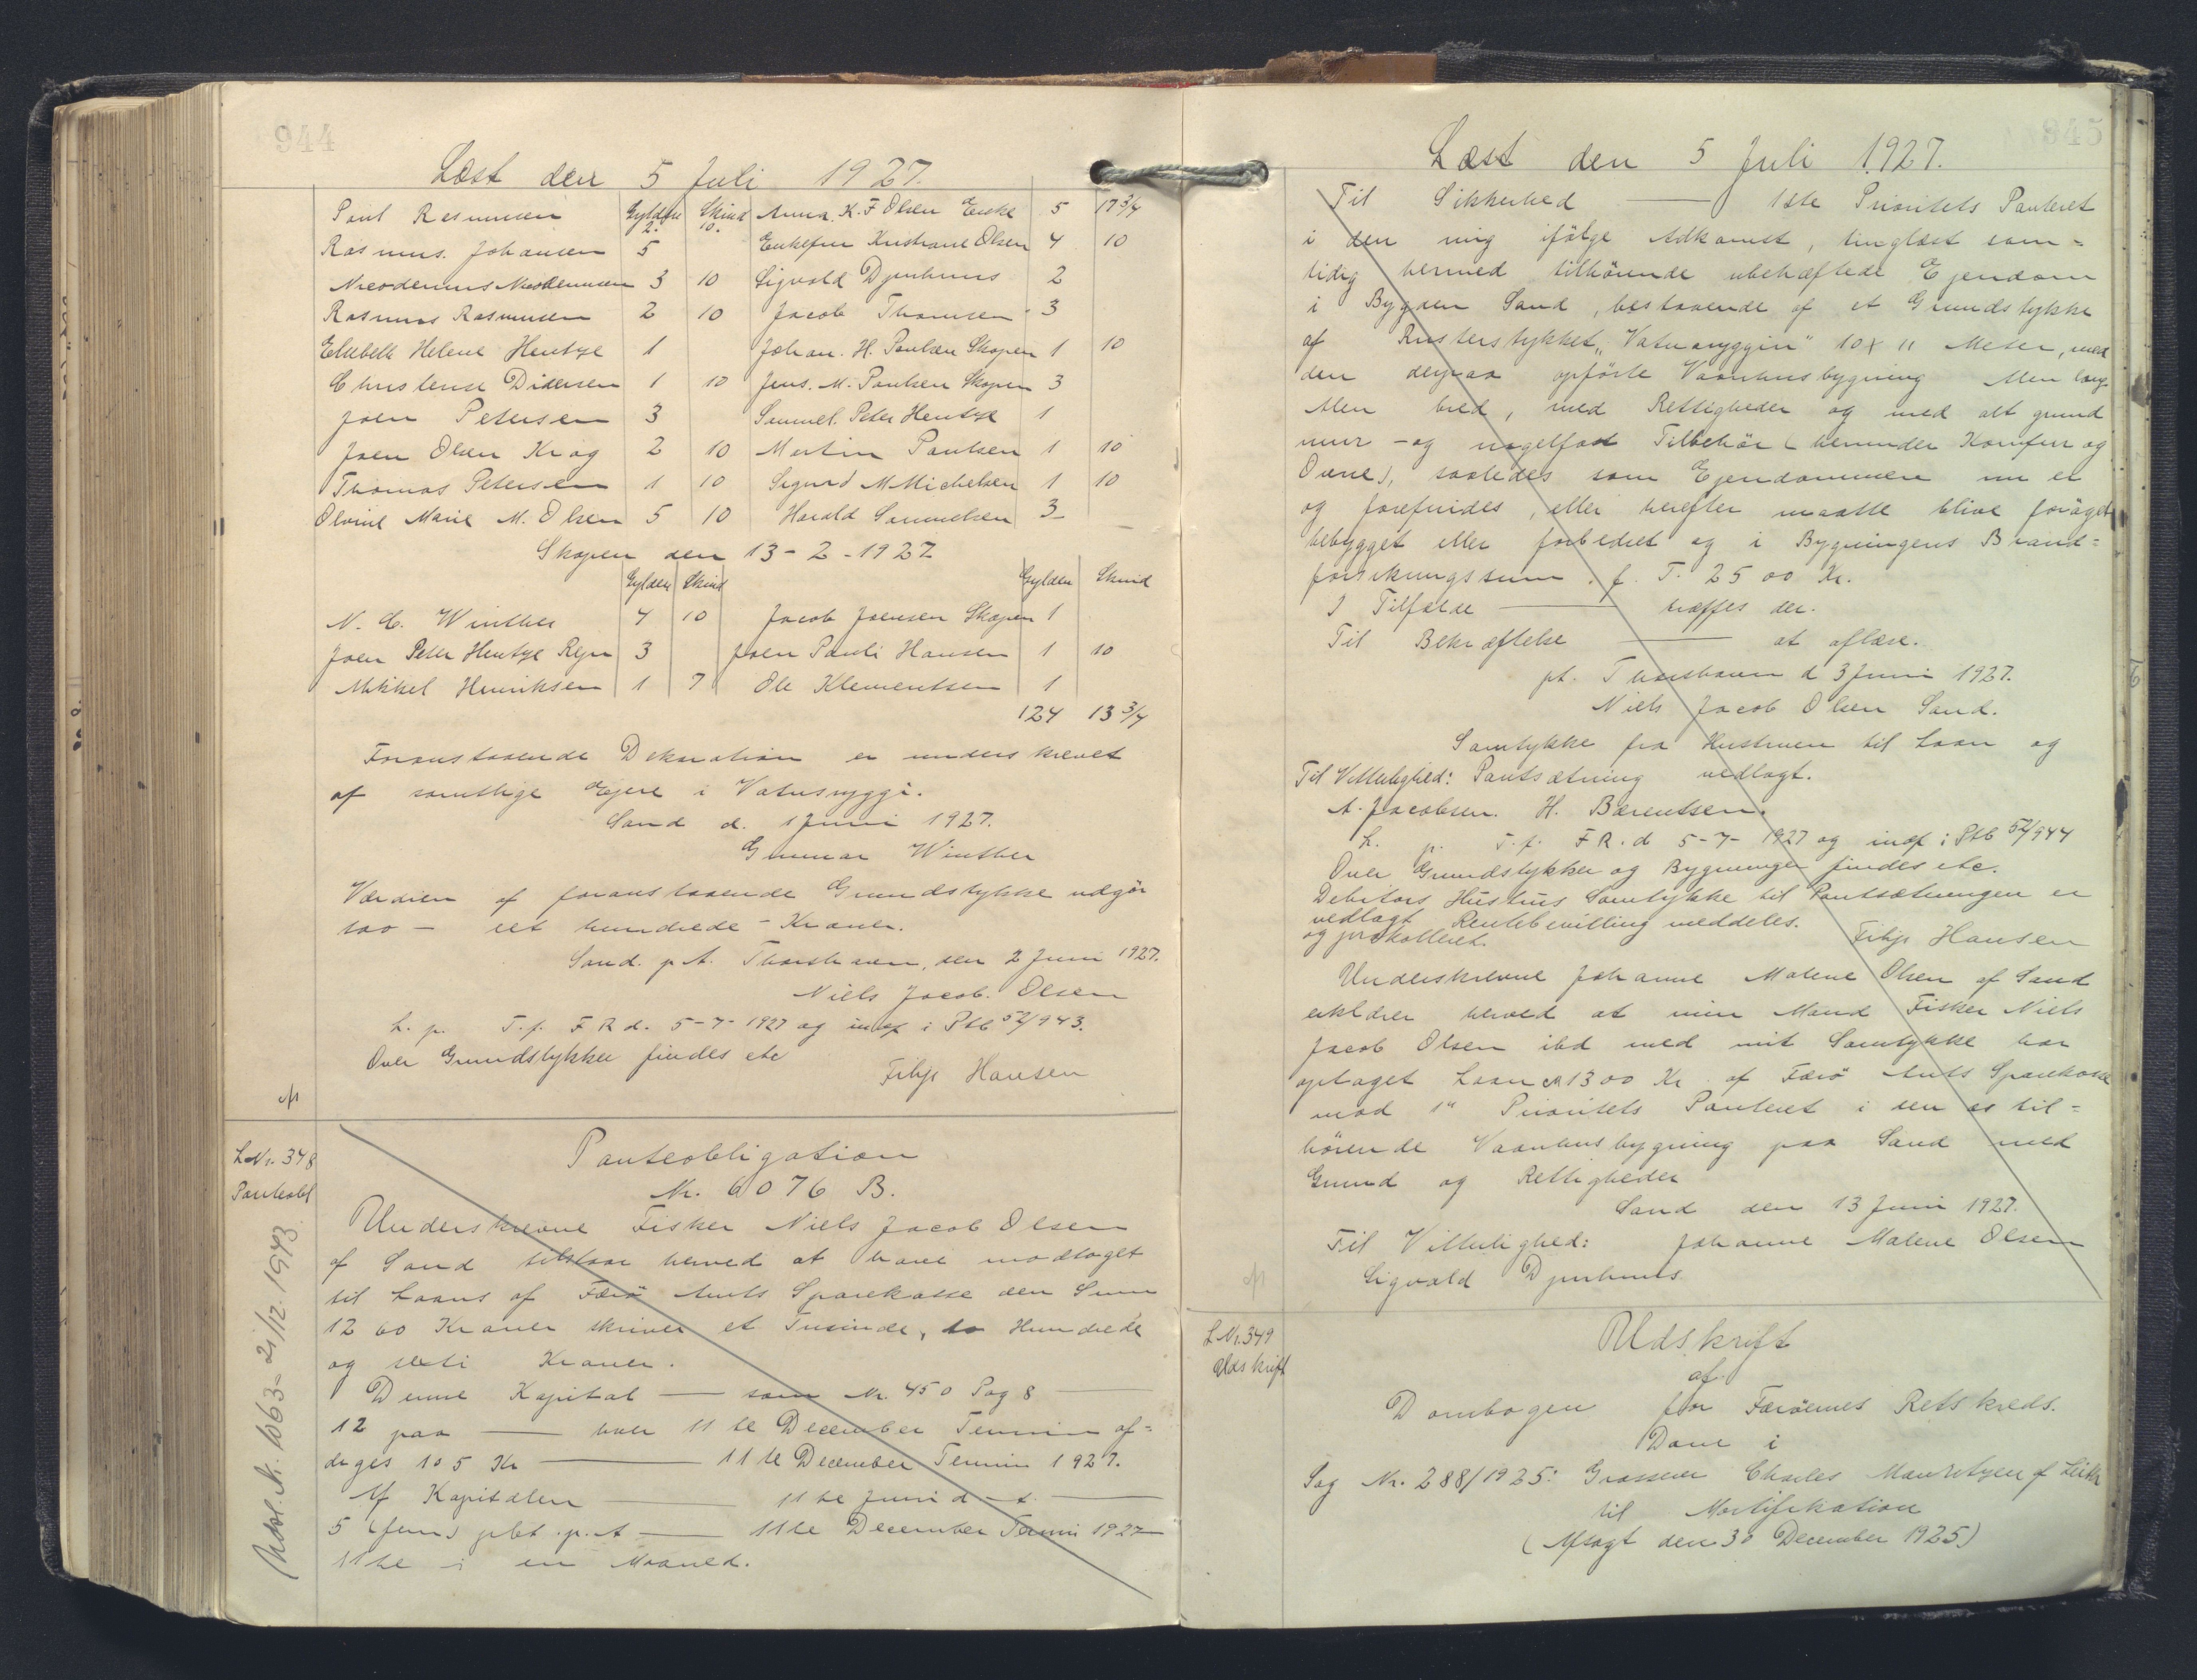 944
Læst den 5 Juli 1927.
Poul Rasmussen Gylden 2. Skind 10. Anna K. F Olsen Enke 5 17 3/4
Rasmus. Johansen 5 Enkefru Kristiane Olsen 4 10
Nicodemus Nicodemusen 3 10 Sigvald Djurhuus 2
Rasmus Rasmussen 2 10 Jacob Thomsen 3
Elsebeth Helene Hentze 1 Johan. H. Poulsen Skopen 1 10
Christense Didersen 1 10 Jens. M. Poulsen Skopen 3
Joen Petersen 3 Samuel. Peter Hentze 1
Joen Olsen Krog 2 10 Martin Poulsen 1 10
Thomas Petersen 1 10 Sigurd M Michelsen 1 10
Olvine Marie M. Olsen 5 10 Harald Samuelsen 3
Skopen den 13-2-1927
Gylden Skind Gylden Skind
N. C. Winther 4 10 Jacob Joensen Skopen 1
Joen Peter Hentze 3 Joen Pauli Hansen 1 10
Mikkel Henriksen 1 7 Ole Klementsen 1
124 13 3/4
Foranstaaende Deklaration er underskrevet
af samtlige Ejere i Vatnsryggi.
Sand d. 1 Juni 1927.
Gunnar Winther
Værdien af foranstaaende Grundstykke udgør
100 - eet hundrede - Kroner.
Sand. p.t. Thorshavn, den 2 Juni 1927.
Niels Jacob. Olsen
L. p. T. f. F R d. 5-7-1927 og indf i Ptb 52/943.
Over Grundstykket findes etc
Filip Hansen
L Nr. 348
Panteobl
Udsl. A. 1063- 21/12. 1943.
Panteobligation
Nr. 6076 B.
Underskrevne Fisker Niels Jacob Olsen
af Sand tilstaar herved at have modtaget
til Laans af Færø Amts Sparekasse den Sum
1260 Kroner skriver et Tusinde, to Hundrede
og seksti Kroner.
Denne Kapital — som Nr. 450 Pag 8 —
12 paa — hver 11te December Termin af=
drages 105 Kr — 11te December Termin 1927.
Af Kapitalen — 11te Juni d — t. —
5 (fem) pCt. p.A — 11te December Termin 1927
11te i en Maaned.
945
Læst den 5 Juli 1927.
Til Sikkerhed — 1ste Prioritets Panteret
i den mig ifølge Adkomst, tinglæst sam=
tidig hermed tilhørende ubehæftede Ejendom
i Bygden Sand, bestaaende af et Grundstykke
af Rusterstykket „Vatnsryggin" 10 x 11 Meter, med
den derpaa opførte Vaaningsbygning Alen lang
Alen bred, med Rettigheder og med alt grund
mur - og nagelfast Tilbehør (herunder Komfur og
Ovne), saaledes som Ejendommen nu er
og forefindes, eller herefter maatte blive forøget
bebygget eller forbedret og i Bygningens Brand=
forsikringssum. f. T. 2500 Kr.
I Tilfælde — træffes der.
Til Bekræftelse — at aflæse.
pt. Thorshavn d 3 Juni 1927.
Niels Jacob Olsen Sand.
Samtykke fra Hustruen til Laan og
Til Vitterlighed: Pantsætning vedlagt.
A. Jacobsen. H. Bærentsen.
L. p. T. f. F R. d 5-7-1927 og indf i Ptb 52/944
Over Grundstykket og Bygningen findes etc.
Debitors Hustrus Samtykke til Pantsætningen er
vedlagt Rentebevilling meddeles.
og protokolleret. Filip Hansen
Underskrevne Johanne Malene Olsen af Sand
erklærer herved at min Mand Fisker Niels
Jacob Olsen ibd med mit Samtykke har
optaget Laan 1300 Kr. af Færø Amts Sparekasse
mod 1" Prioritets Panteret i den os til=
hørende Vaaningsbygning paa Sand med
Grund og Rettigheder
Sand den 13 Juni 1927.
Til Vitterlighed: Johanne Malene Olsen
Sigvald Djurhuus
L Nr. 349
Udskrift
Udskrift
af
Dombogen for Færøernes Retskreds.
Dom i
Sag Nr. 288/1925: Grosserer Charles Mauritzen af Leith
til Mortifikation
(Afsagt den 30 December 1925)